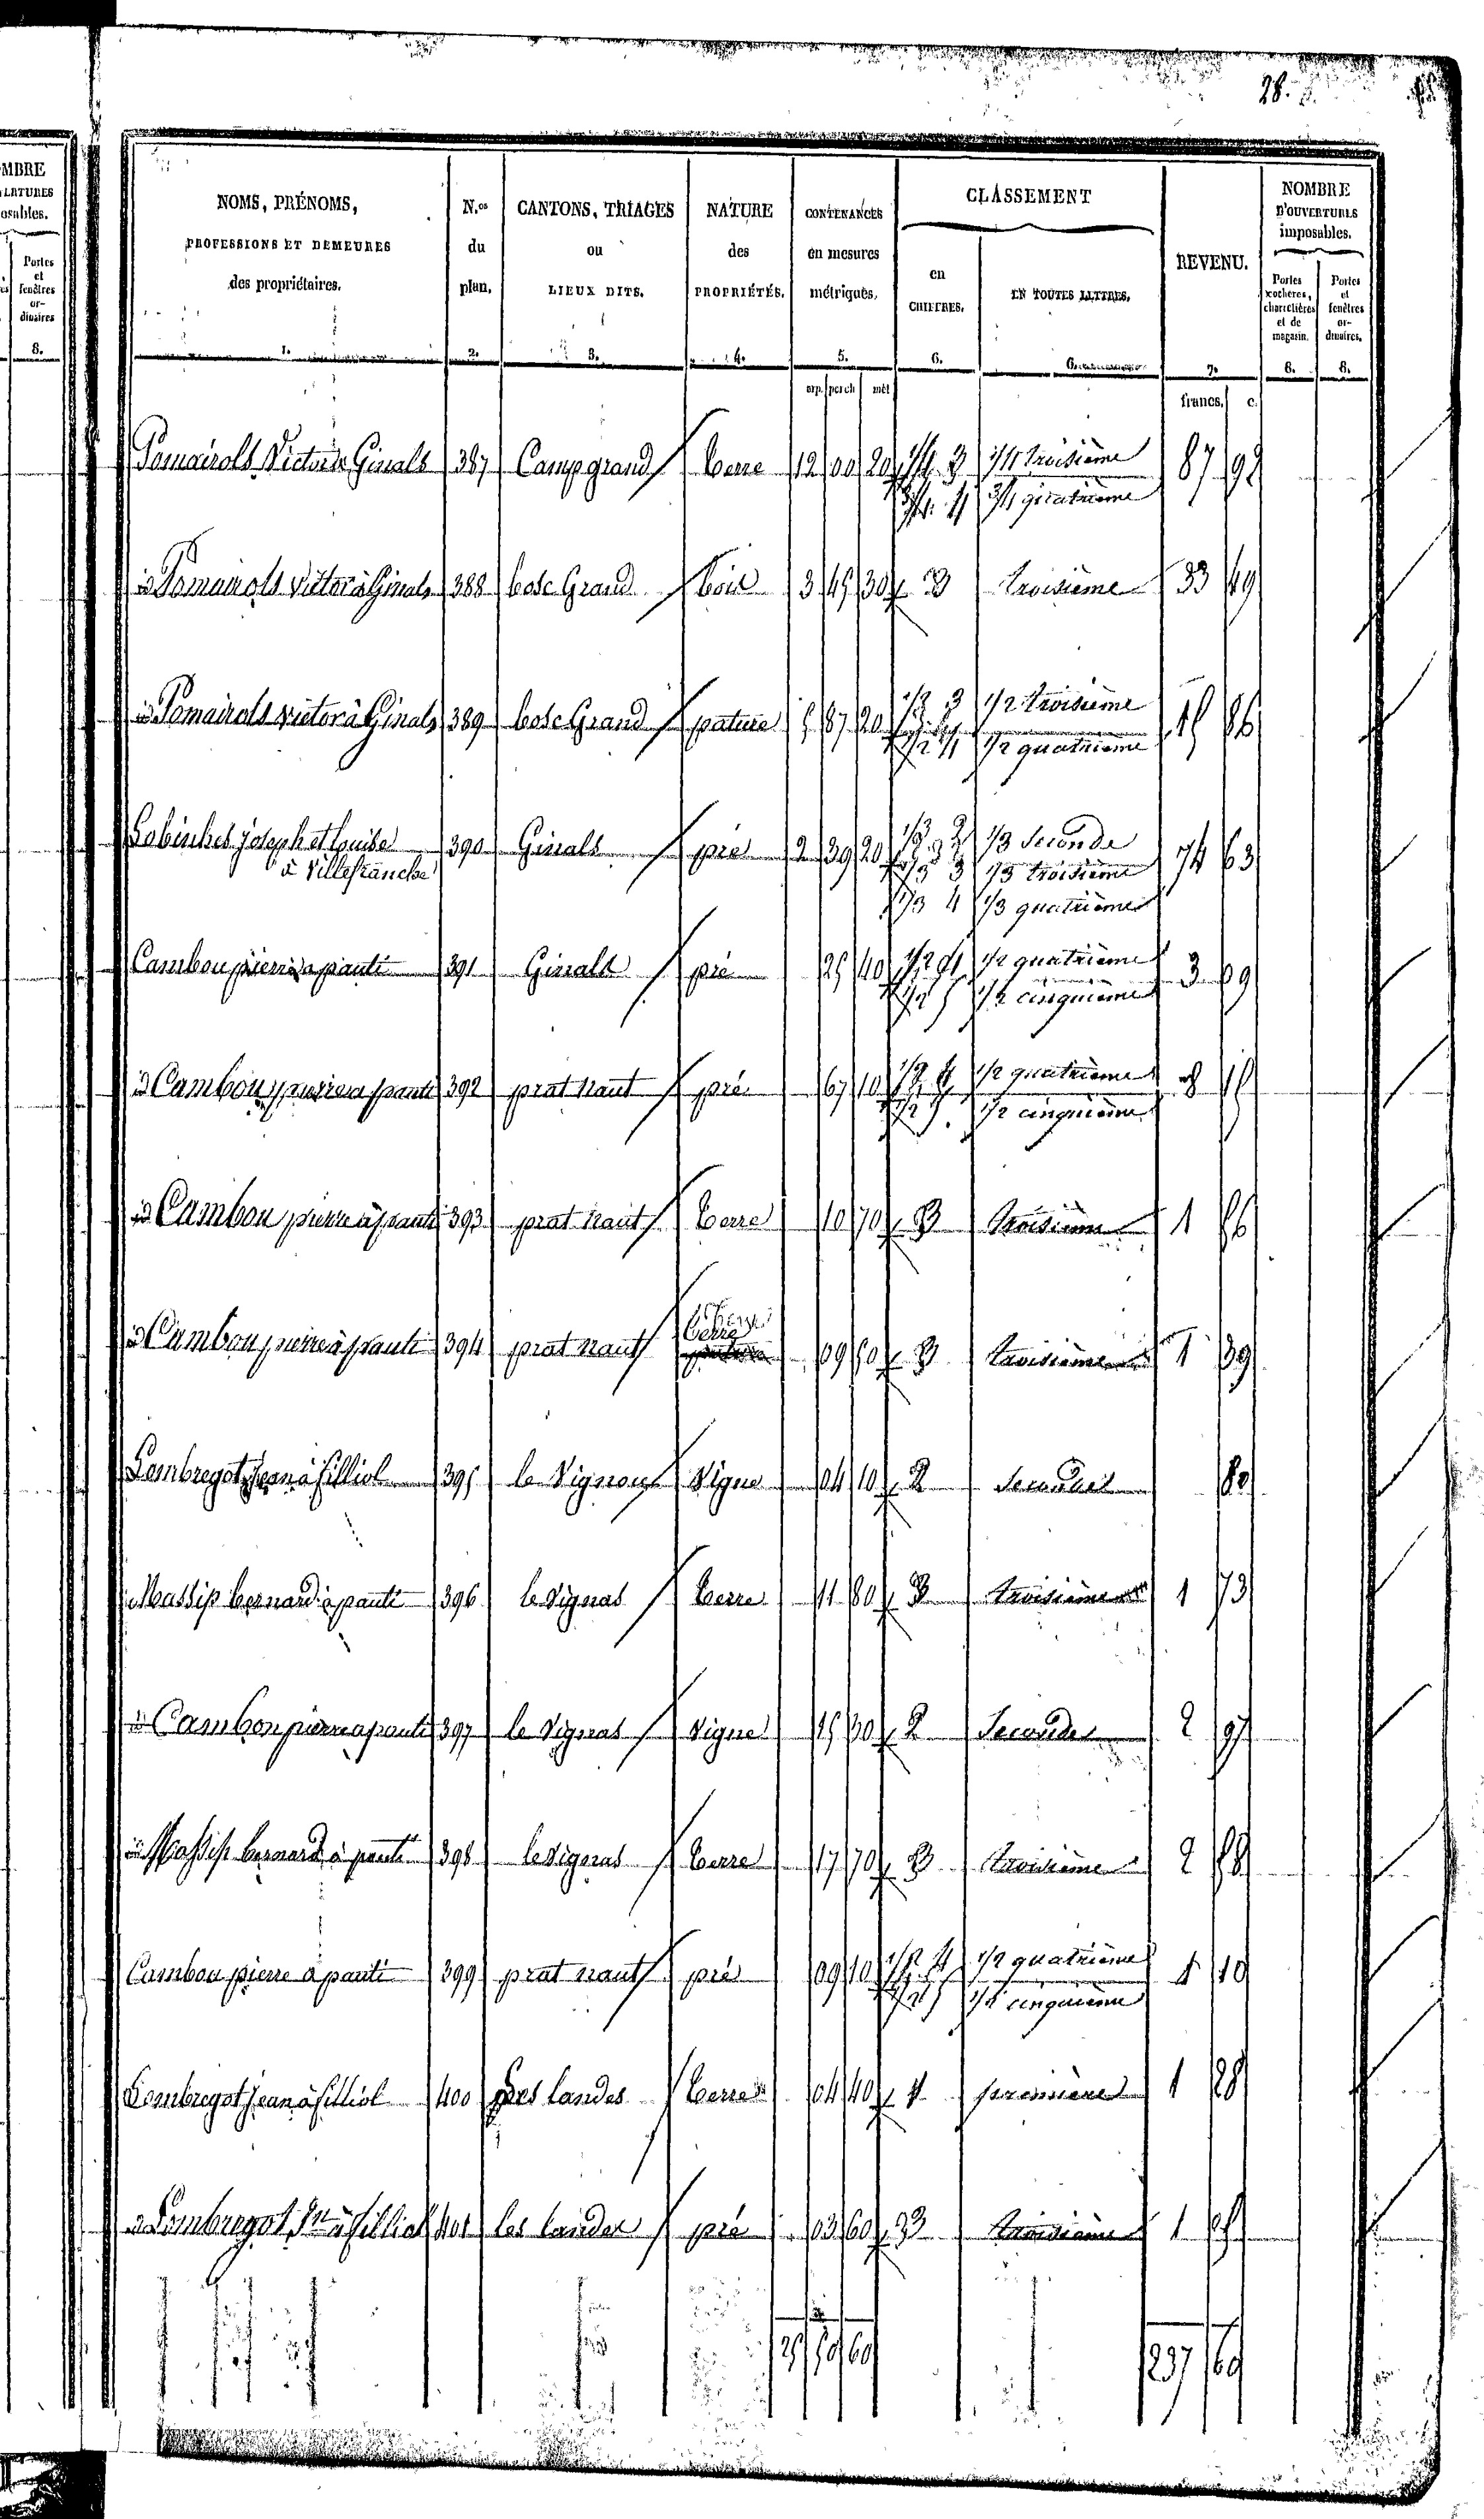 28.
MBRE
LRTURES
osables.
Portes
et
fenêtres
or-
dinaires
8.
NOMS, PRÉNOMS,
PROFESSIONS ET DEMEURES
des propriétaires.
1.
N.os
du
plan.
2.
CANTONS, TRIAGES
ou
LIEUX DITS.
3.
NATURE
des
PROPRIÉTÉS.
4.
CONTENANCES
en mesures
métriques.
5.
CLASSEMENT
en
CHIFFRES.
6.
EN TOUTES LETTRES.
6.
REVENU.
7.
NOMBRE
D'OUVERTURES
imposables.
Portes
cochères,
charretières
et de
magasin.
8.
Portes
et
fenêtres
or-
dinaires.
8.
arp. perch mèt
francs. c.
Pomairols Victor à Ginals 387 Camp grand terre 12 00 20 1/4 3 1/4 troisième 87 92
3/4 4 3/4 quatrième
id Pomairols Victor à Ginals 388 bosc Grand bois 3 45 30 3 troisième 33 49
id Pomairols victor à Ginals 389 bosc Grand pature 5 87 20 1/2 3 1/2 troisième 15 86
1/2 4 1/2 quatrième
joseph et louise 390 Ginals pré 2 39 20 1/3 2 1/3 Seconde 74 63
à Villefranche 1/3 3 1/3 troisième
1/3 4 1/3 quatrième
Cambou pierre a panti 391 Ginals pré 25 40 1/2 4 1/2 quatrième 3 09
1/2 5 1/2 cinquième
id Cambou pierre a panti 392 prat naut pré 67 10 1/2 4 1/2 quatrième 8 15
1/2 5 1/2 cinquième
id Cambou pierre à panti 393 prat naut terre 10 70 3 troisième 1 56
id Cambou pierre à panti 394 prat naut terre 09 50 3 troisième 1 39
Lombregot Jean à filliol 395 le Vignou Vigne 04 10 2 Seconde 80
Massip bernard à panti 396 le vignas terre 11 80 3 troisième 1 73
id Cambou pierre a panti 397 le Vignas Vigne 15 30 2 Seconde 2 97
id Massip bernard à panti 398 le vignas terre 17 70 3 troisième 2 58
Cambou pierre à panti 399 prat naut pré 09 10 1/2 4 1/2 quatrième 1 10
1/2 5 1/2 cinquième
Lombregot Jean à filliol 400 les landes terre 04 40 1 première 1 28
id Lombregot Jn à filliol 401 les landes pré 03 60 3 troisième 1 05
25 50 60 237 60